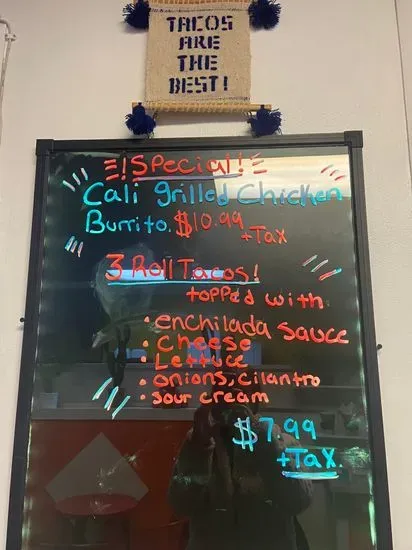 TACOS
ARE
THE
BEST!
! Special !
Cali grilled Chicken
Burrito. $10.99
+Tax
3 Roll Tacos!
topped with
• enchilada sauce
• Cheese
• Lettuce
• onions, cilantro
• sour cream
$7.99
+Tax.